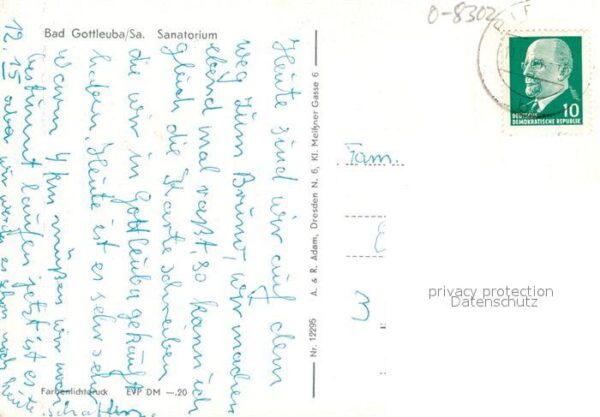 Bad Gottleuba/Sa. Sanatorium
O-8302
Heute sind wir auf dem
weg zum Brunn, wir machen
eben mal rast, so kann ich
gleich die Karte schreiben
die wir in Gottleuba gekauft
haben. Heute ist es sehr sehr
warm 4 km müßen wir noch
bestimmt laufen jetzt ist es
12.15 aber wir werden es schon noch heute
schaffen
Farbenlichtdruck EVP DM -.20
Nr. 12295 A. & R. Adam, Dresden N. 6, Kl. Meißner Gasse 6
Fam.
10
DEUTSCHE
DEMOKRATISCHE REPUBLIK
3
privacy protection
Datenschutz